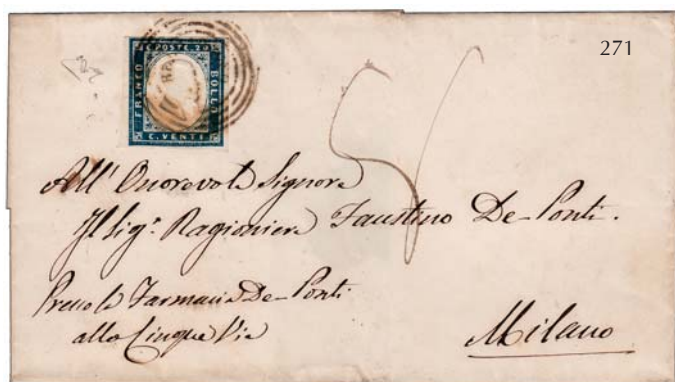 271
C. POSTE 20
FRANCO
BOLLO
C. VENTI
All' Onorevole Signore
Il Sigr. Ragioniere Faustino De-Ponti.
Presso la Farmacia De-Ponti
alle Cinque Vie
Milano